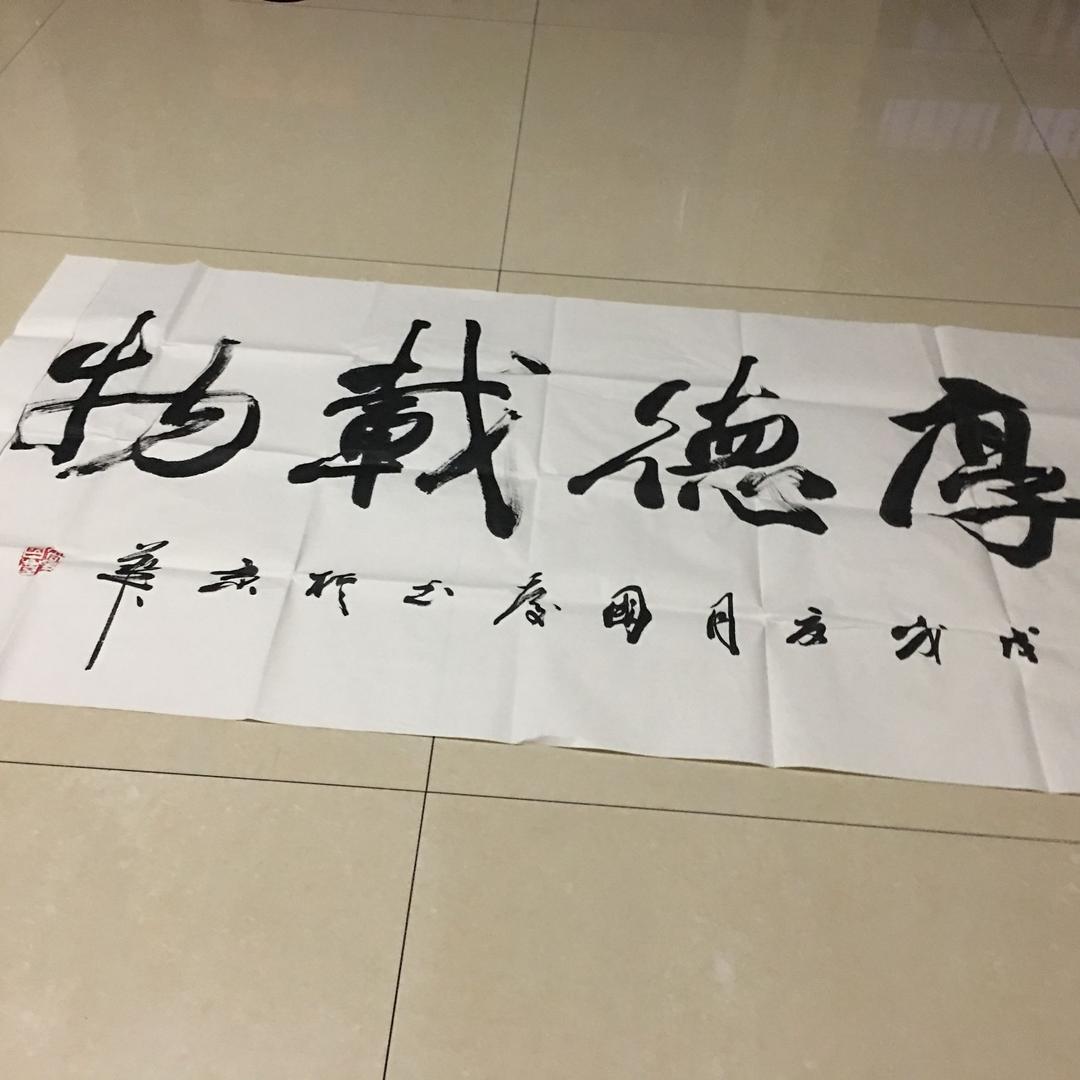 厚德載物
戊戌月國慶书於京華